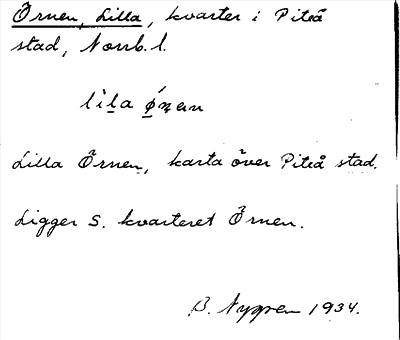 Örnen, Lilla, kvarter i Piteå
stad, Norrb. l.
lìl̲a ǿ̲n̥ən
Lilla Örnen, karta över Piteå stad.
Ligger S. kvarteret Örnen.
B. Nygren 1934.